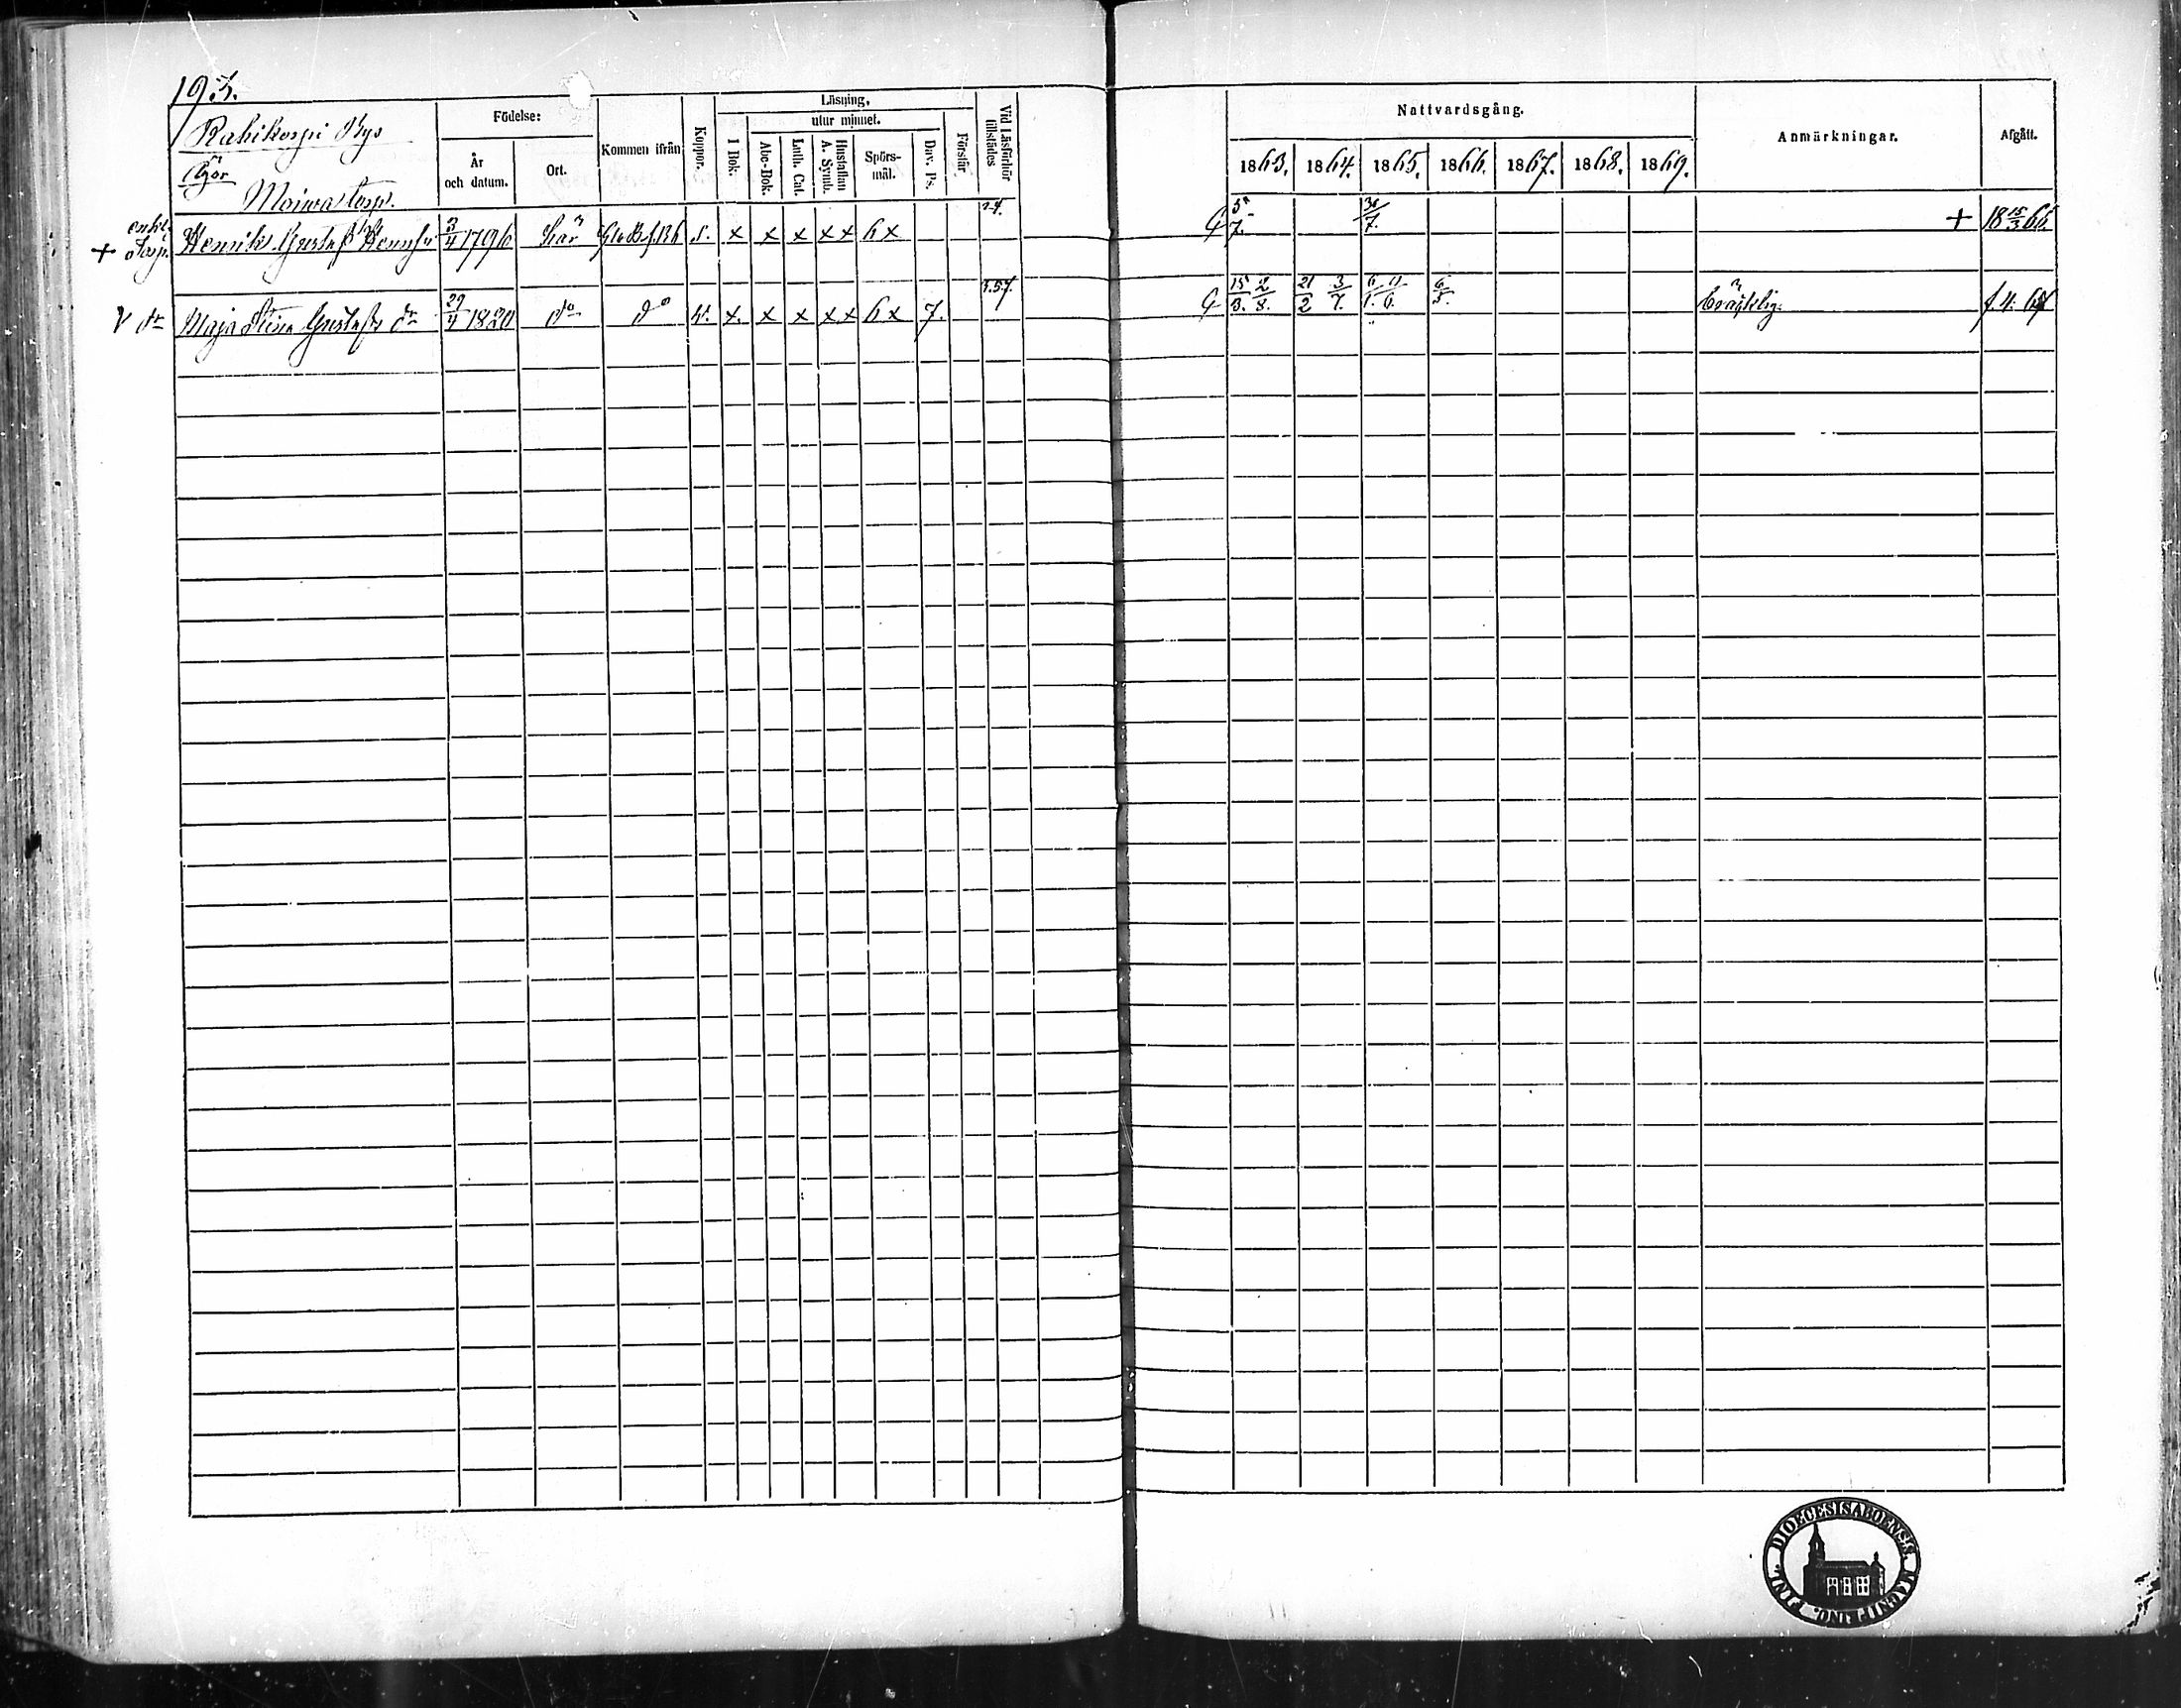 195.
Rahikorpi By
Gör
Födelse:
År
och datum.
Ort.
Kommen ifrån
Koppor.
Läsning,
utur minnet.
I Bok.
Abc-Bok.
Luth. Cat.
Hustaflan
A. Symb.
Spörs-
mål.
Dav. Ps.
Förstår
Vid Läsförhör
tillstädes
Nattvardsgång.
1863. 1864. 1865. 1866. 1867. 1868. 1869.
Anmärkningar.
Afgått.
torp.
enkl.
+ Torp. Henrik Gustaf 3/4 1796 här s. x x x x x 6 x 2.4.
5/7. 30/7. + 18 15/3 66.
V dr Maja Stina Gustafs dr 29/4 1820 do do x. x x x x 6 x 7. 3.5.7.
15/3. 2/8. 21/2 3/7. 6/1. 11/6. 6/5. bräcklig. f. 4. 67
FINL. DIOECESIS ABOENSIS. MAGNI PRINC.